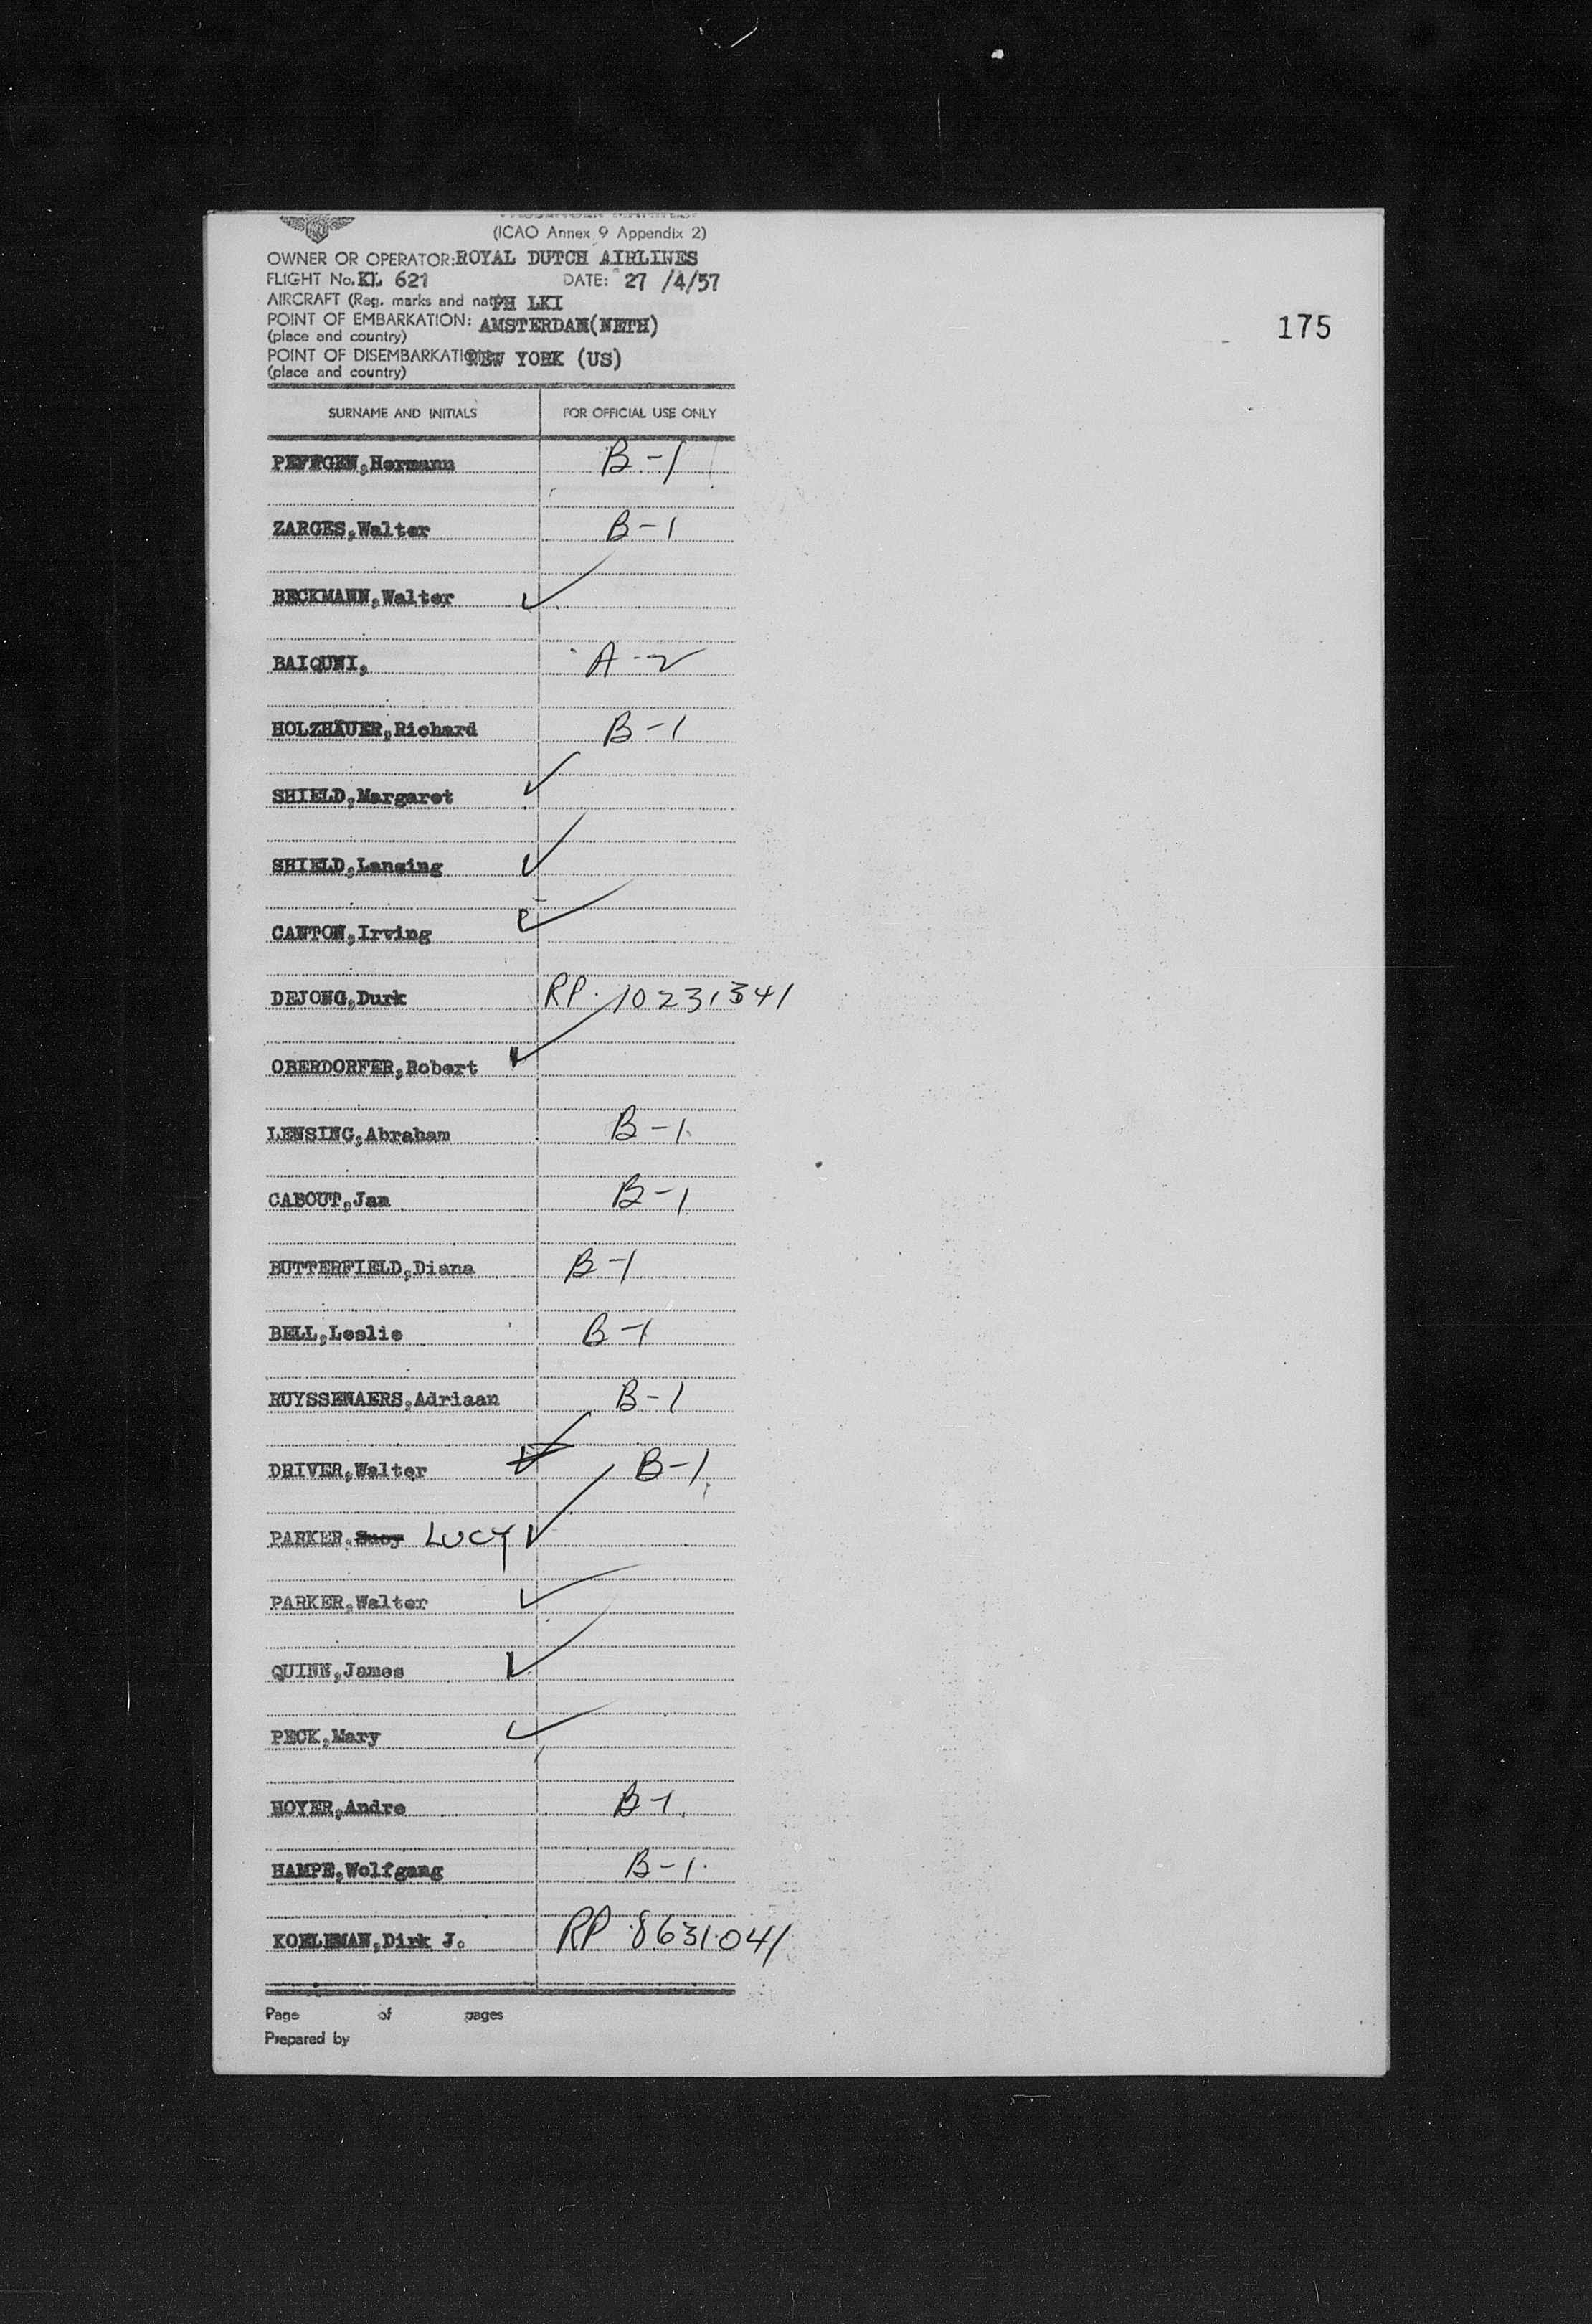 PASSENGER MANIFEST
(ICAO Annex 9 Appendix 2)
OWNER OR OPERATOR: ROYAL DUTCH AIRLINES
FLIGHT No. KL 621 DATE: 27 /4/57
AIRCRAFT (Reg. marks and nat. PH LKI
POINT OF EMBARKATION: AMSTERDAM(NETH)
(place and country)
175
POINT OF DISEMBARKATION NEW YORK (US)
(place and country)
SURNAME AND INITIALS FOR OFFICIAL USE ONLY
PEFFGEN,Hermann B-1
ZARGES,Walter B-1
BECKMANN,Walter ✓
BAIQUNI, A-2
HOLZHÄUER,Richard B-1
SHIELD,Margaret ✓
SHIELD,Lansing ✓
CANTON,Irving ✓
DEJONG,Durk RP. 10231341
OBERDORFER,Robert ✓
LENSING,Abraham B-1
CABOUT,Jan B-1
BUTTERFIELD,Diana B-1
BELL,Leslie B-1
RUYSSENAERS,Adriaan B-1
DRIVER,Walter ✓ B-1
PARKER, Sucy LUCY ✓
PARKER,Walter ✓
QUINN,James ✓
PECK,Mary ✓
HOYER,Andre B-1
HAMPE,Wolfgang B-1
KOELEMAN,Dirk J. RP 8631041
Page of pages
Prepared by